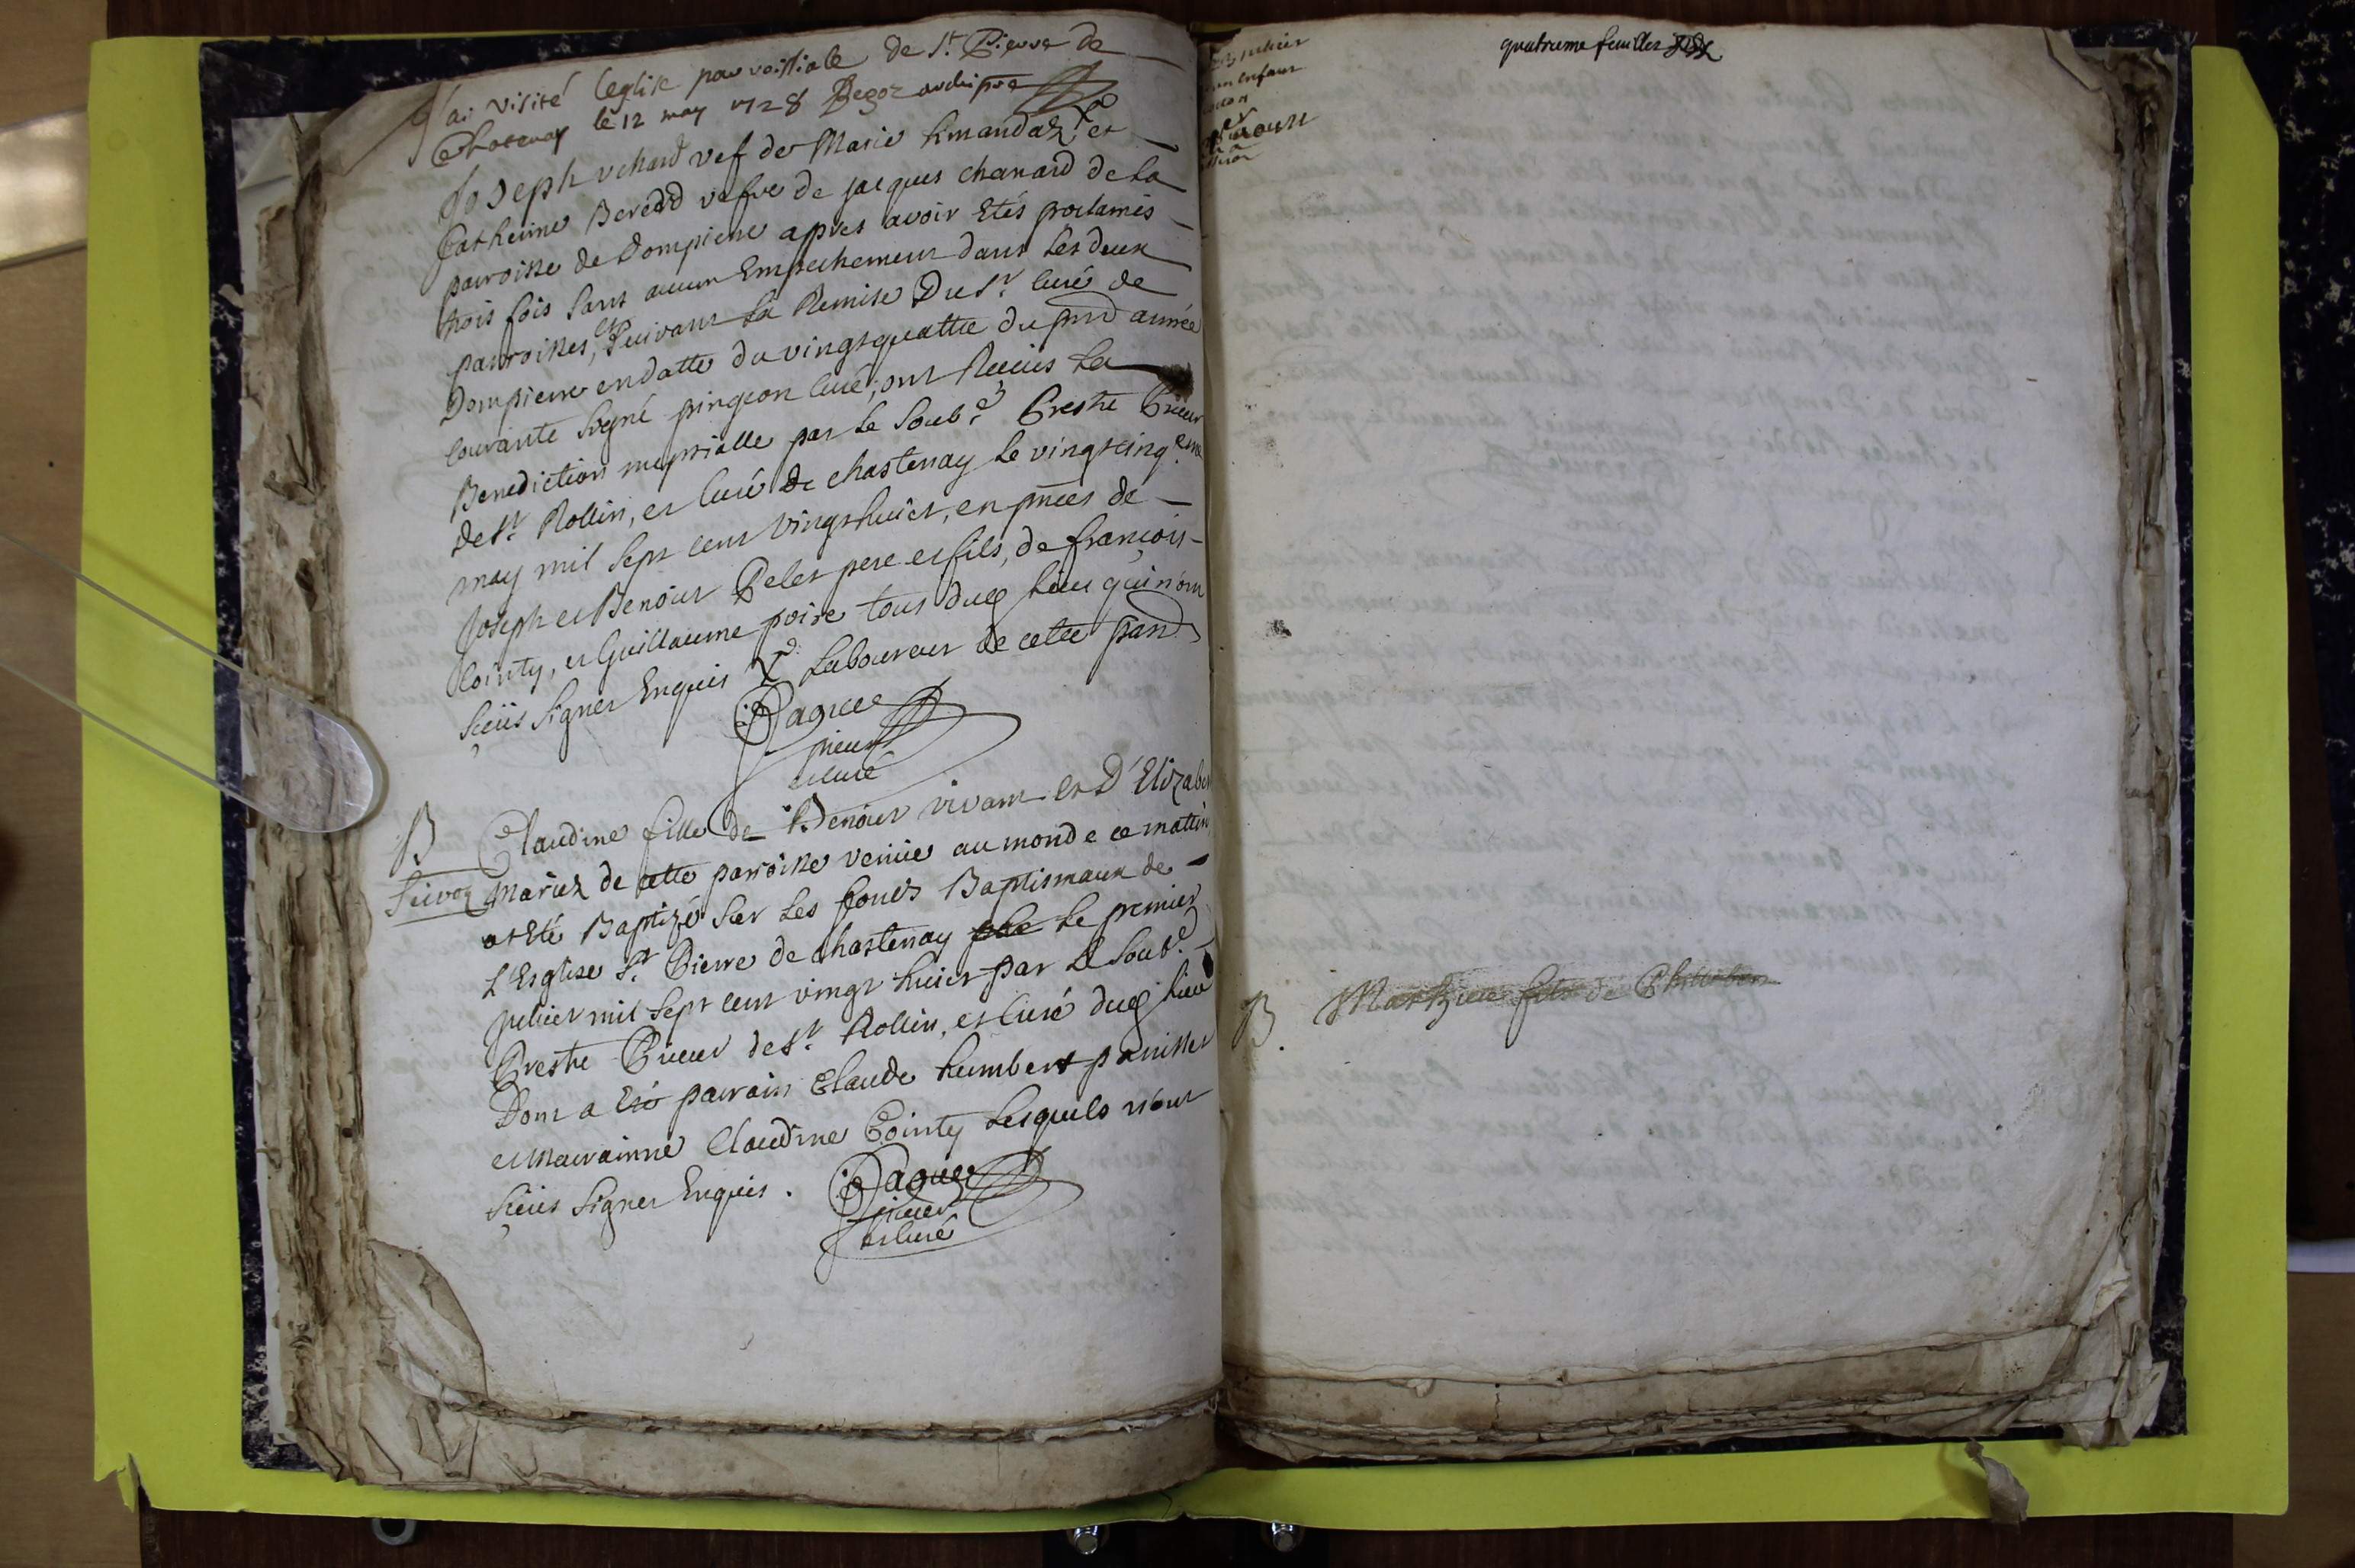 J'ai visité l'eglise parroissiale de St. Pierre de
Chatenay le 12 may 1728 archipre
Joseph vef de Marie et
Catherine vefve de jacques chanard de la
parroisse de Dompierre apres avoir Etés proclamés
trois fois sans aucun Empechement dans les deux
parroisses, et suivant la Remise Du Sr. Curé de
Dompierre en datte du vingtquattre du pnt année
Courante signé pingeon Curé, ont Receus la
Benediction nuptialle par le Soub.é Prestre Prieur
de St. Rollin, et Curé de chastenay le vingtcinq.eme
may mil sept cent vingthuict, en pnces de
Joseph et Benoist Pelet pere et fils, de françois
Cointy, et Guillaume poire tous dud. lieu qui n'ont
sceüs signer Enquis X laboureur de cette par.
Pagnee
prieur
et curé
B
Claudine fille de Benoist vivant et D'Elizabet
Mariez de cette parroisse venüe au monde ce mattin
at Eté Baptizé sur les fonds Baptismaux de
L'Esglise St. Pierre de chastenay le premier
juliet mil sept cent vingt huict par le Soub.é
Prestre Prieur de St. Rollin, et Curé dud. lieu
Dont a Eté parrain Claude humbert
et Marrainne Claudine Cointy lesquels n'ont
sceüs signer Enquis.
Pagnee
prieur
et Curé
quatrieme feuillet
B. Mathieu fils de Philibert